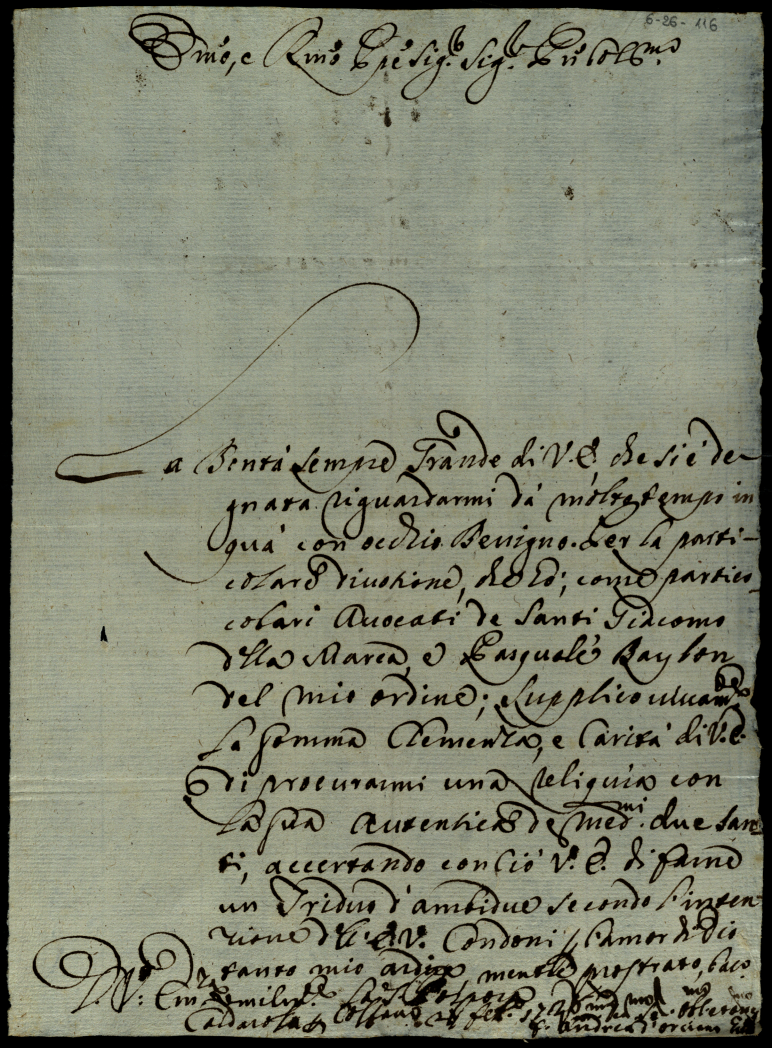 6-26-116
Emo, e Rmo Ppe Sigr. Sigr. Pñ Colmo
La Bontá sempre Grande di V.E. che si é de-
gnata riguardarmi dá molto tempo in
quá con occhio Benigno. Per la parti-
colare divotione, che hó; come partico-
colari Avocati de Santi Giacomo
della Marca, e Pasquale Baylon
del mio ordine; supplico
la somma Clemenza, e Caritá di V.E.
di procurarmi una reliquia con
la sua autentica de med.mi due San-
ti, accertando con ció V.E. di farne
un Triduo d'ambidue secondo l'inten-
zione dell'E.V. Condoni l'amor di Dio
tanto mio ardire mentre prostrato, bacio
D.V. Em.
Caldarola